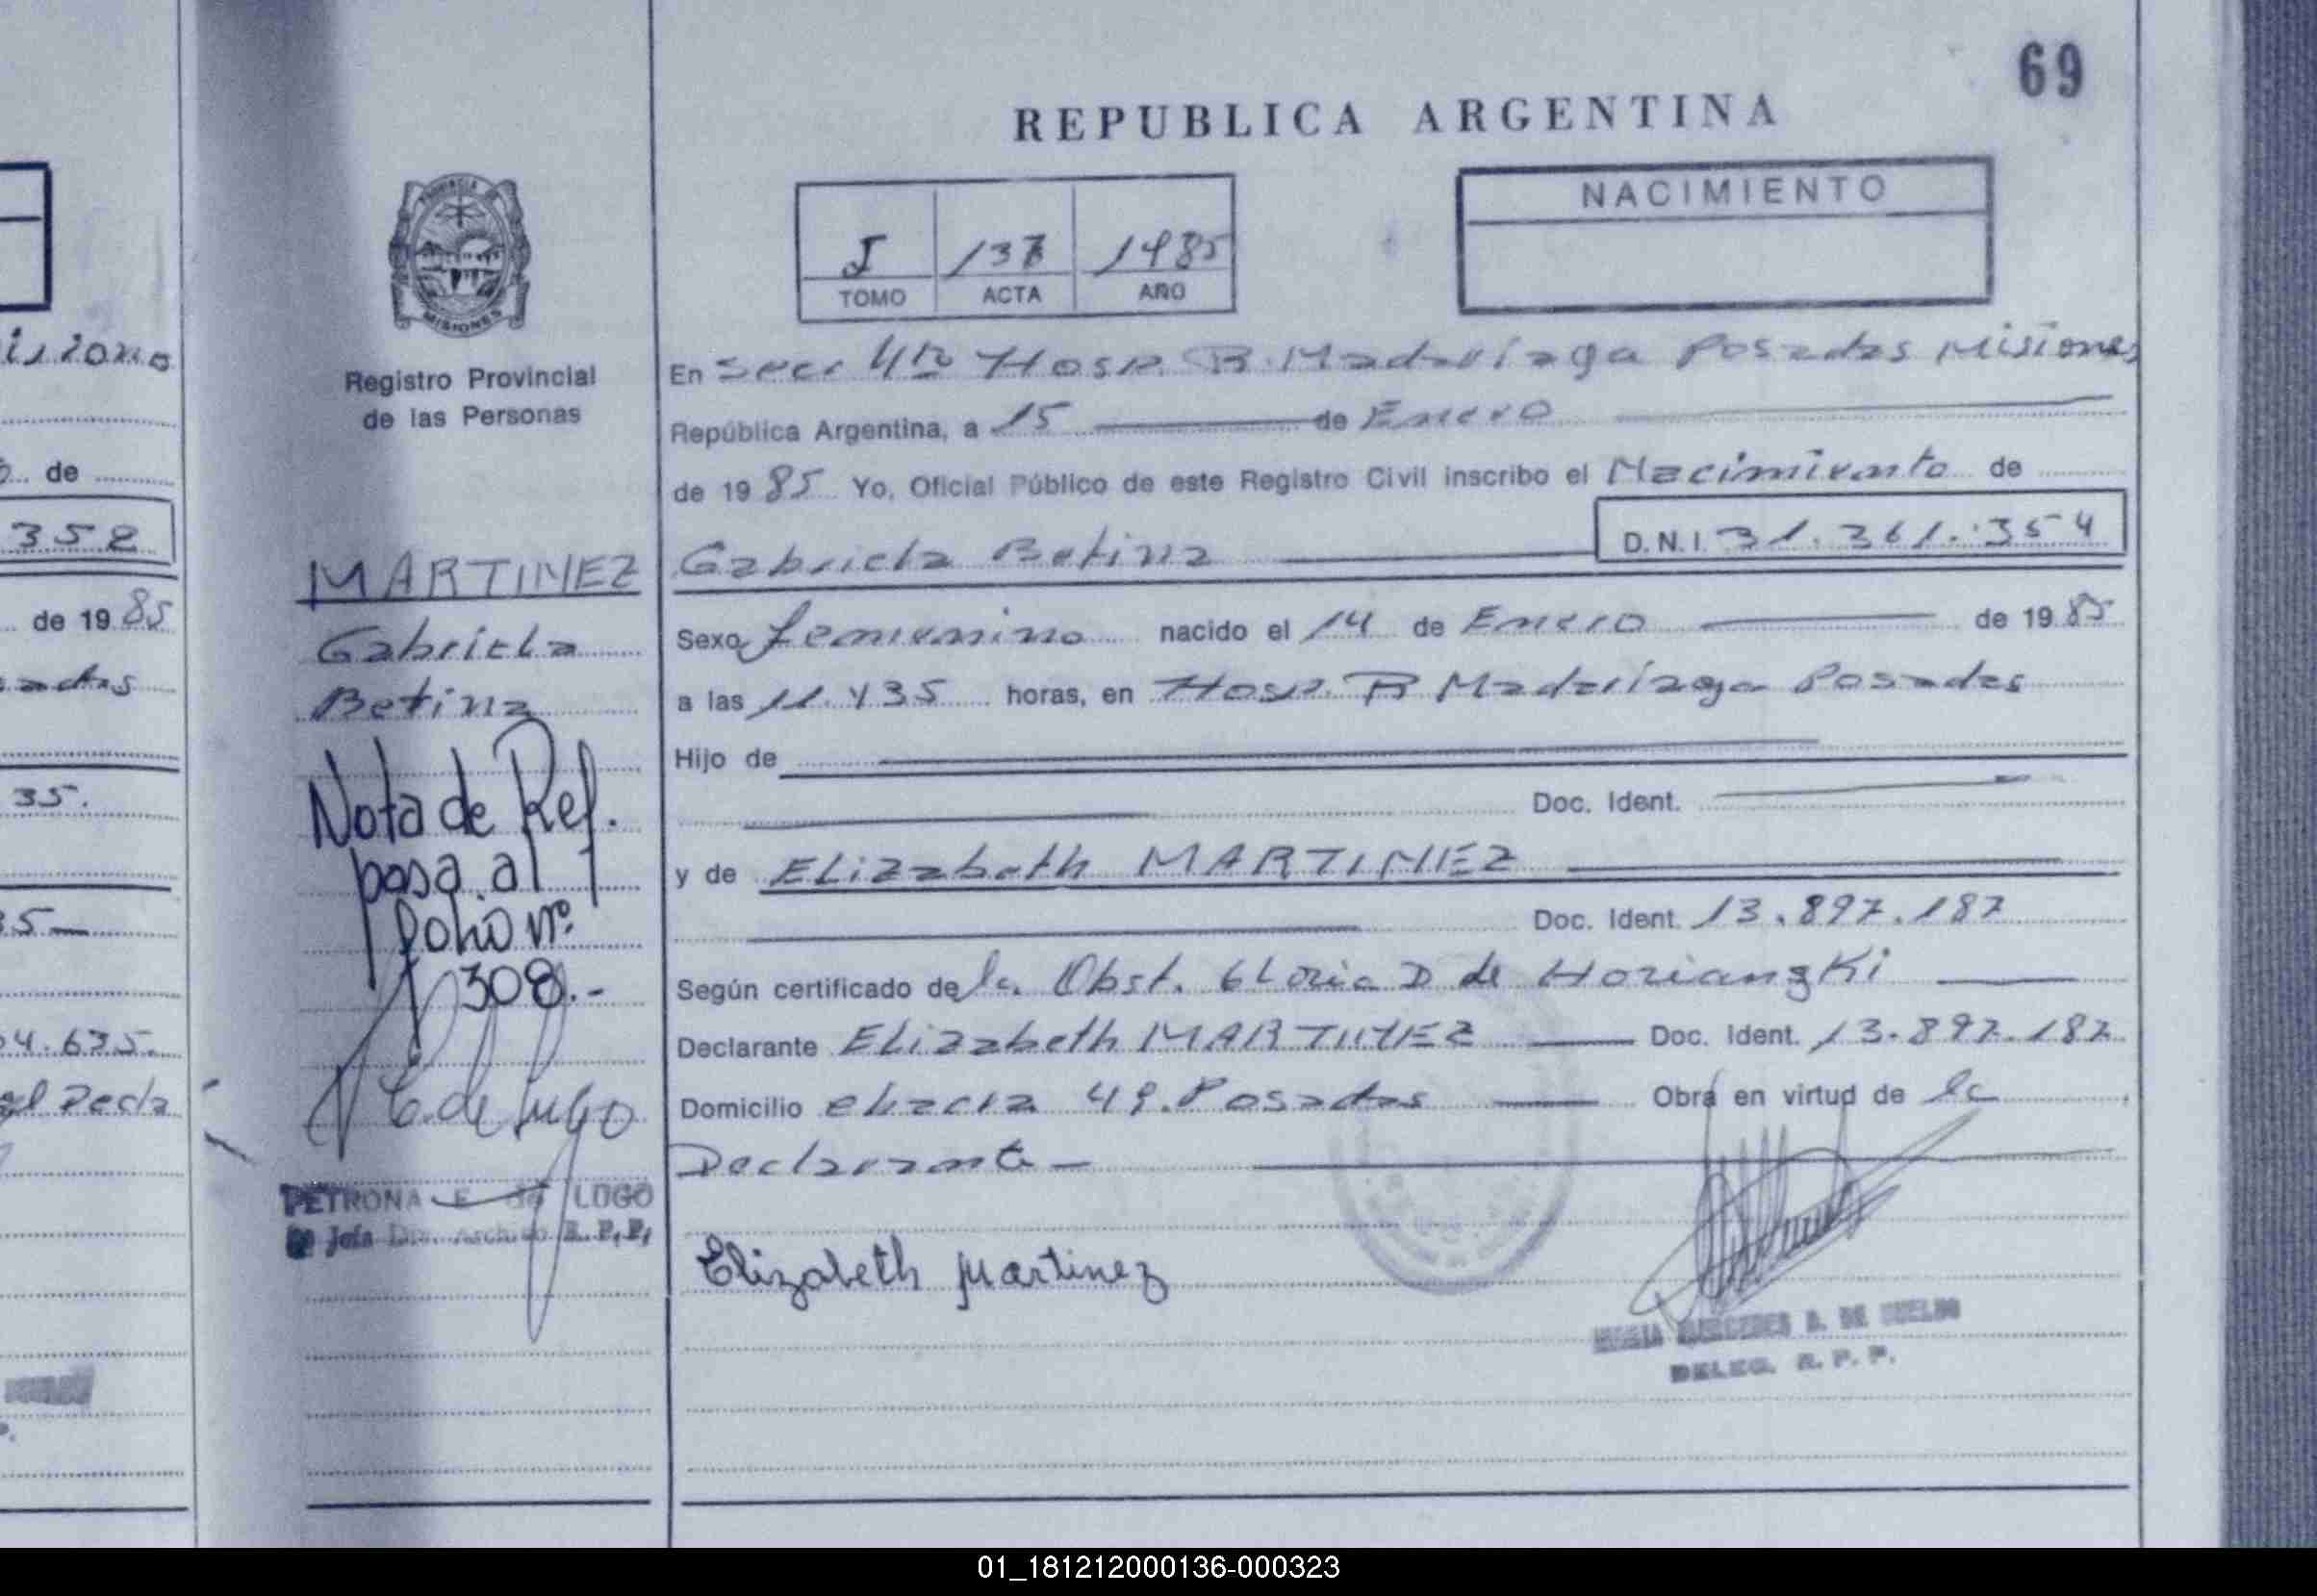 69
REPUBLICA ARGENTINA
NACIMIENTO
I 137 1985
TOMO ACTA AÑO
PROVINCIA
MISIONES
Registro Provincial
de las Personas
En Secc 4ta Hosp. R. Madariaga Posadas Misiones
República Argentina, a 15 de Enero
de 1985 Yo, Oficial Público de este Registro Civil inscribo el Nacimiento de
D.N.I. 31.361.354
MARTINEZ Gabriela Betina
Gabriela
Betina
Sexo femenino nacido el 14 de Enero de 1985
a las 11.y35 horas, en Hosp. R Madariaga Posadas
Hijo de
Doc. Ident.
y de Elizabeth MARTINEZ
Doc. Ident. 13.897.187
Según certificado de la Obst. Gloria D de
Declarante Elizabeth MARTINEZ Doc. Ident. 13.897.187
Domicilio 49. Posadas Obra en virtud de la
Declarante
Elizabeth Martinez
A. DE
DELEG. R. P. P.
Nota de Ref.
pasa al
folio nº
308.-
E. de Lugo
PETRONA E de LUGO
Jefa Dpto. Archivo R. P. P.
de
352
de 1985
35.
35
4.635.
01_181212000136-000323